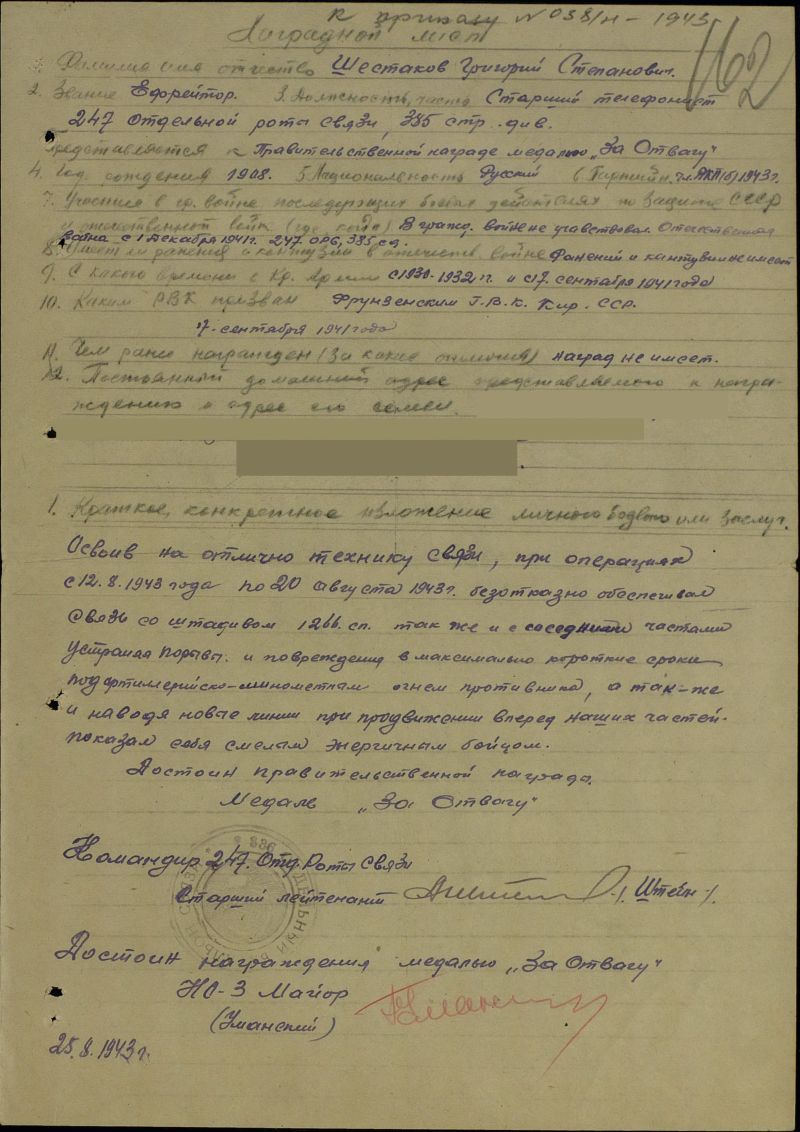 к приказу № 038/н - 1943
Наградной лист
162
1. Фамилия имя отчество Шестаков Григорий Степанович.
2. Звание Ефрейтор. 3. Должность, часть Старший телефонист
247 отдельной роты связи, 385 стр. див.
представляется к Правительственной награде медалью „За Отвагу"
4. Год рождения 1908. 5 Национальность Русский 6. Партийн. чл. ВКП(б) 1943 г.
7. Участие в гр. войне последующих боевых действиях по защите СССР
и отечественной войне (где, когда) В гражд. войне не учавствовал. Отечественная
война с 1 декабря 1941 г. 247 орс, 385 сд.
8. Имеет ли ранения и контузии в отечеств. войне Ранений и контузии не имеет
9. С какого времени в Кр. Армии с 1930-1932 г. и с 17. сентября 1941 года
10. Каким РВК призван Фрунзенским Г.В.К. Кир. ССР.
17. сентября 1941 года
11. Чем ранее награжден (за какие отличия) наград не имеет.
12. Постоянный домашний адрес представляемого к награ-
ждению и адрес его семьи.
1. Краткое, конкретное изложение личного боевого или заслуг.
Освоив на отлично технику связи, при операциях
с 12. 8. 1943 года по 20 августа 1943 г. безотказно обеспечивал
связь со штадивом 1266. сп. так же и с соседними частями
устраняя порывы. и повреждения в максимально короткие сроки
под артилерийско-минометным огнем противника, а так-же
и наводя новые линии при продвижении вперед наших частей-
показал себя смелым энергичным бойцом.
Достоин правительственной награды.
Медаль „За Отвагу"
Командир 247. Отд. Роты связи
Старший лейтенант /. Штейн ./.
Достоин награждения медалью „За Отвагу"
НО-3 Майор
(Уманский)
25. 8. 1943 г.